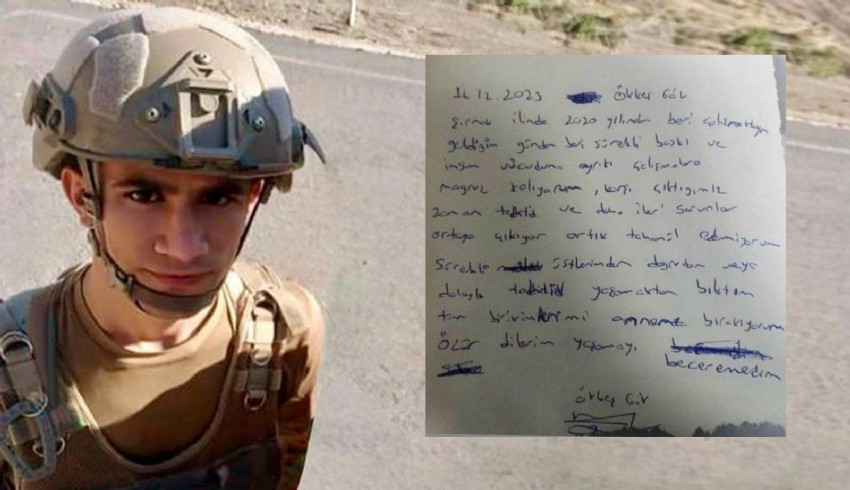 12.12.2023 Ökkeş Gök
Şırnak ilinde 2020 yılından beri çalışmaktayım
geldiğim günden beri sürekli baskı ve
insan vücuduna aykırı çalışmalara
magruz kalıyorum, karşı çıktığımız
zaman tehdid ve daha ileri sorunlar
ortaya çıkıyor artık tahamül edemiyorum
Sürekli üstlerimden doğrudan veya
dolaylı tehdid yaşamaktan bıktım
tüm birikimlerimi anneme bırakıyorum
Özür dilerim yaşamayı
beceremedim